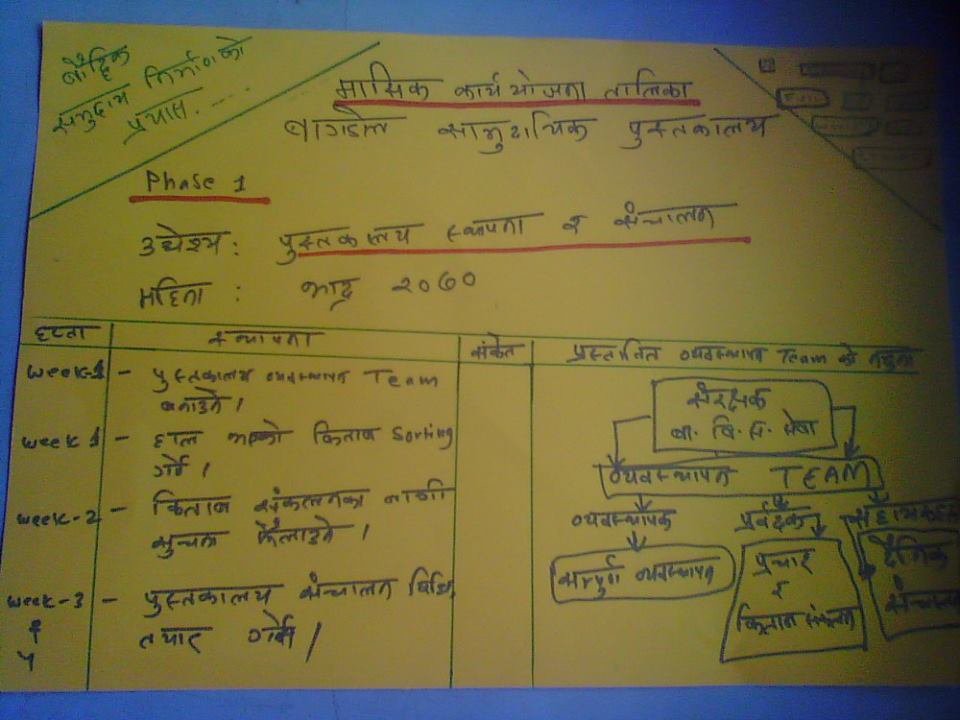 बौद्धिक
समुदाय निर्माणको
प्रयास....
मासिक कार्य योजना तालिका
बागडोल सामुदायिक पुस्तकालय
Phase 1
उद्येश्य: पुस्तकालय स्थापना र संचालन
महिना : भाद्र २०७०
हप्ता
स्थापना
संकेत
प्रस्तावित व्यवस्थापन Team को नमुना
week-1 - पुस्तकालय व्यवस्थापन Team
बनाउने।
week 1 - हाल भएको किताब Sorting
गर्ने।
week-2 - किताब संकलनका लागी
सुचना फैलाउने।
week-3 - पुस्तकालय संचालन विधि
र
४
तयार गर्ने।
संरक्षक
बा. वि. स. सेवा
व्यवस्थापन TEAM
व्यवस्थापक
प्रर्वद्धक
सम्पुर्ण व्यवस्थापन
प्रचार
र
किताब संकलन
दैनिक